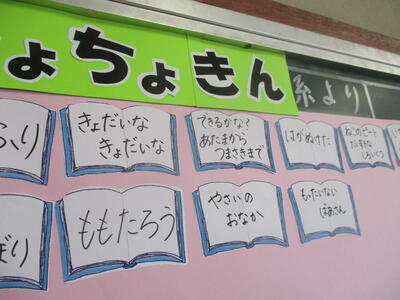 ょちょきん
系より
きょだいな
きょだいな
できるかな?
あたまから
つまさきまで
はがぬけた
ねこのピート
だいすきな
しろいくつ
ももたろう
やさいの
おなか
もったいない
ばあさん